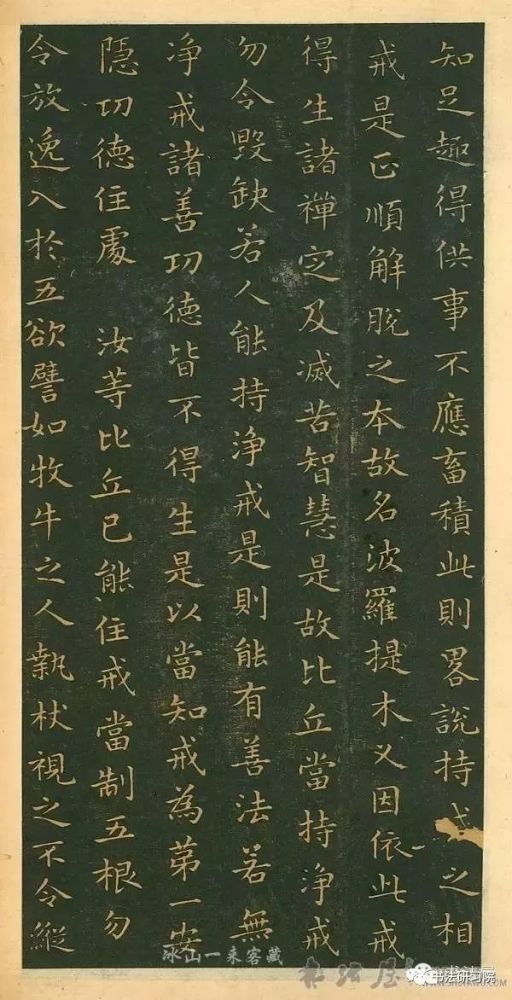 知足趣得供事不應畜積此則畧說持戒之相
戒是正順解脫之本故名波羅提木叉因依此戒
得生諸禪定及滅苦智慧是故比丘當持淨戒
勿令毀缺若人能持淨戒是則能有善法若無
淨戒諸善功德皆不得生是以當知戒為苐一安
隱功德住處 汝等比丘已能住戒當制五根勿
令放逸入於五欲譬如牧牛之人執杖視之不令縱
冰山一来客藏
书法研习院